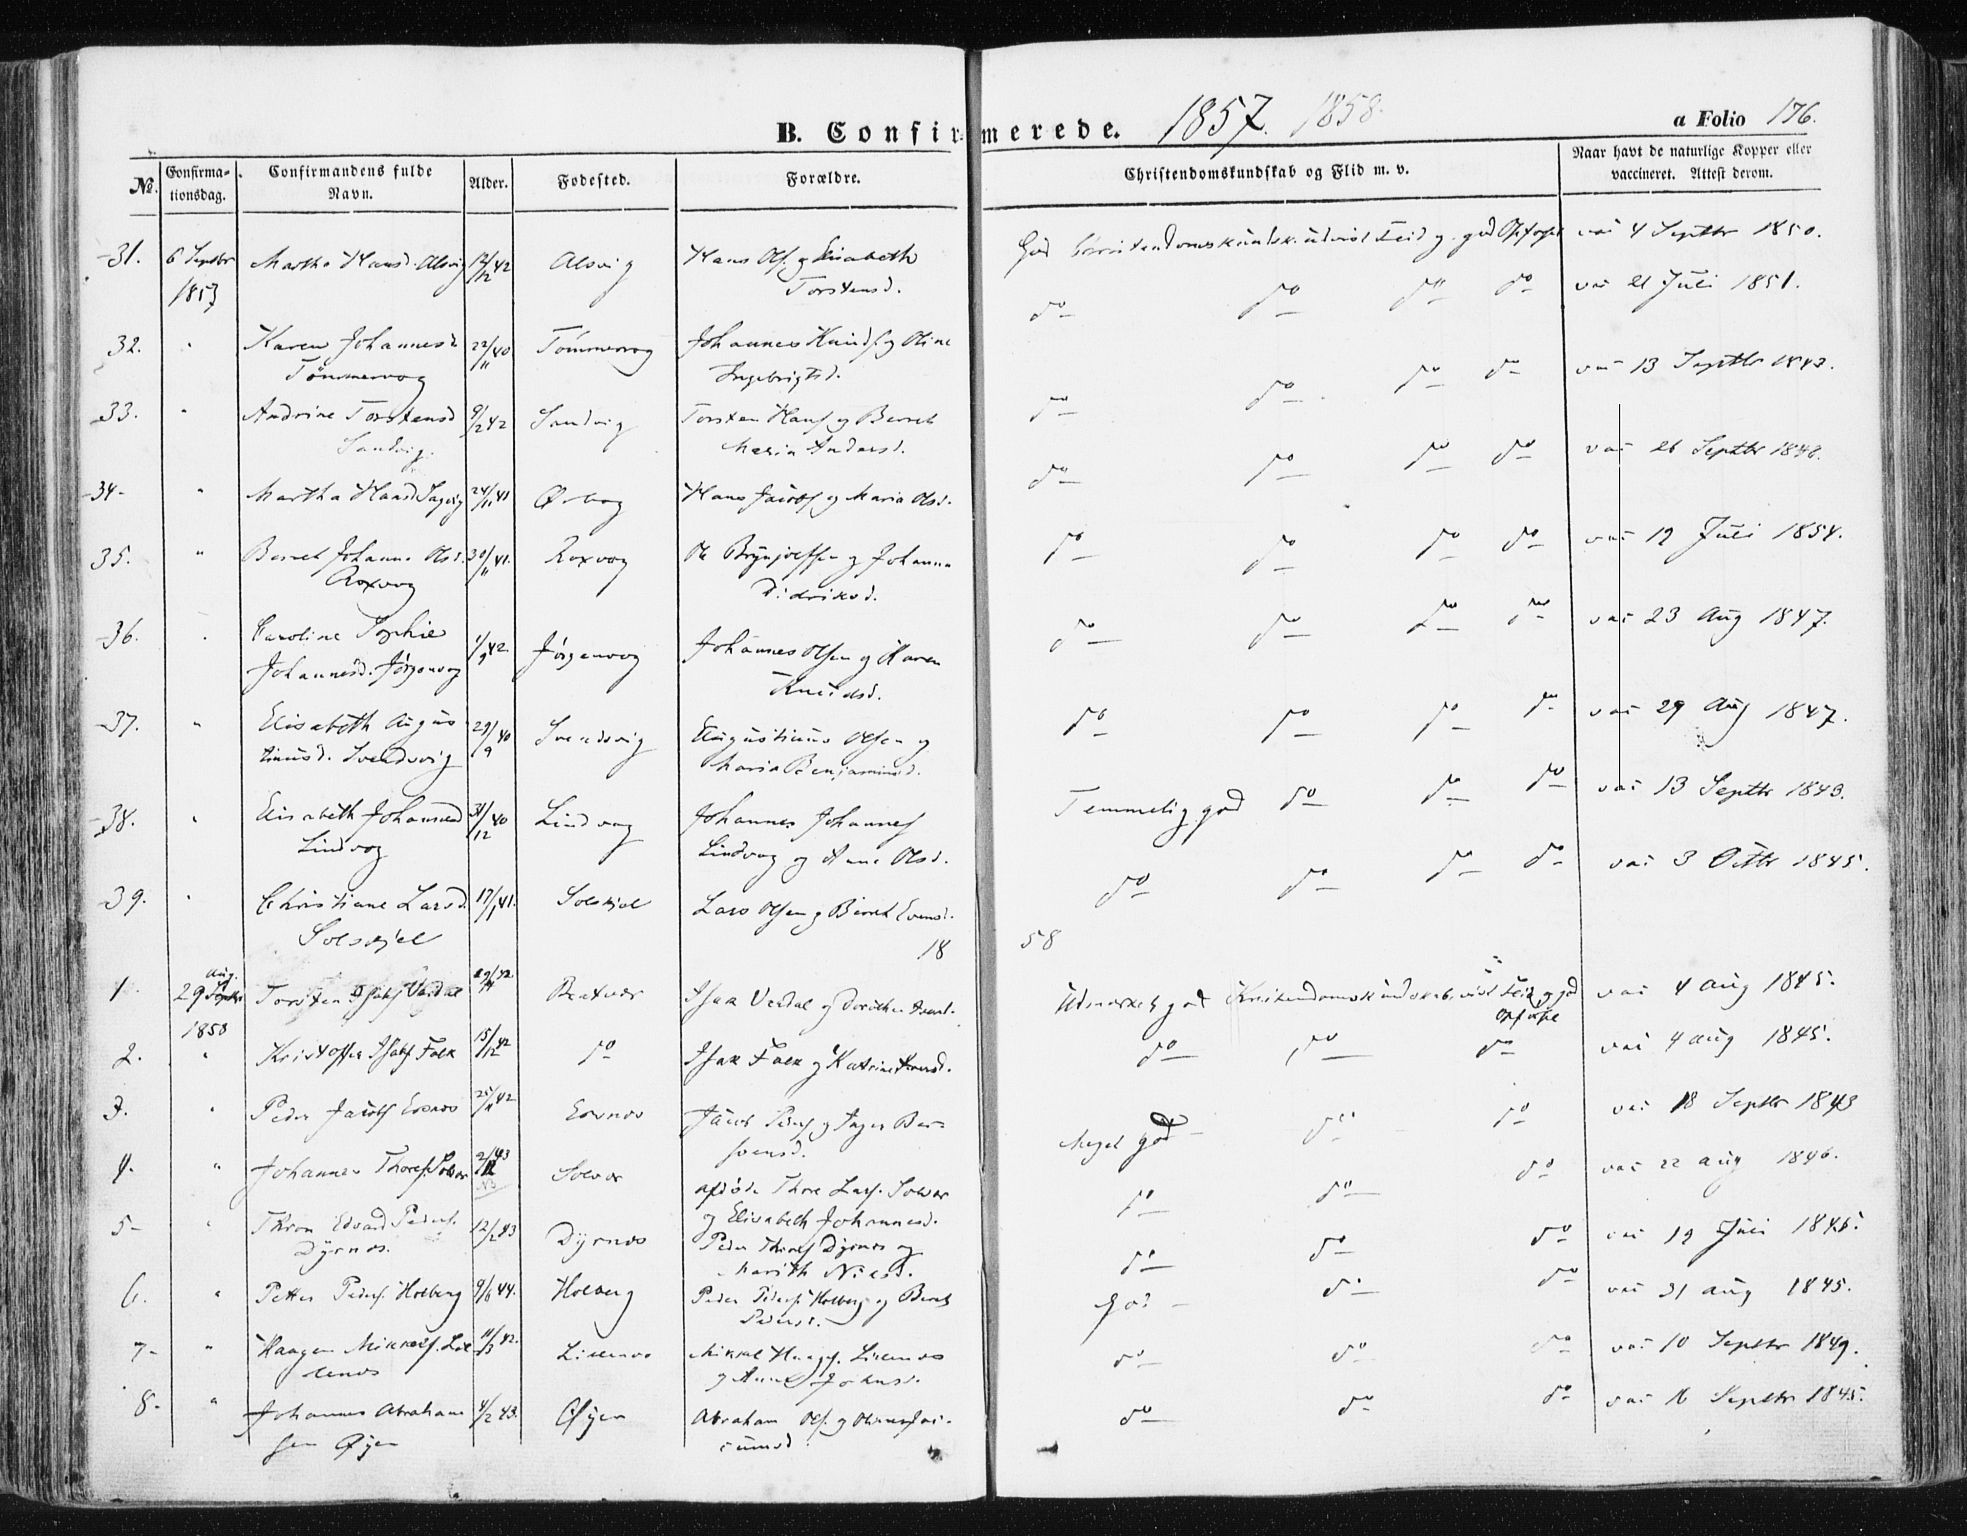 B. Confirmerede. 1857. 1858. a Folio 176.
No. Confirmationsdag. Confirmandens fulde Navn. Alder. Fødested. Forældre. Christendomskundskab og Flid m. v. Naar havt de naturlige Kopper eller vaccineret. Attest derom.
31. 6 Septbr 1857 Martha Hansd. Alsvig 12/12 42 Alsvig Hans Ols. og Elisabeth Torstensd. God Christendomskundsk. udvist Flid og god Opførsel vac 4 Septbr 1850.
32. " Karen Johannesd. Tømmervog 22/11 40 Tømmervog Johannes Knuds. og Oline Ingebrigtsd. do do do do vac 21 Juli 1851.
33. " Andrine Torstensd Sandvig. 9/2 42 Sandvig Torsten Hans. og Beret Maria Andersd. do do do do vac 13 Septbr 1843.
34. " Martha Hansd 24/11 41 Hans Jacobs. og Maria Olsd. do do do do vac 26 Septbr 1848.
35. " Beret Johanna Olsd. Roxvog 30/11 41. Roxvog Ole Brynjolfsen og Johanna Didriksd. do do do do vac 19 Juli 1854.
36. " Caroline Sophie Johannesd. Jørgenvog 1/9 42 Jørgenvog Johannes Olsen og Karen Knudsd. do do do do vac 23 Aug 1847.
37. " Elisabeth Augustinusd. Svendsvig 29/9 40 Svendsvig Augustinus Olsen og Maria Benjaminsd. do do do do vac 29 Aug 1847.
38. " Elisabeth Johannesd Lindvog 31/12 40 Lindvog Johannes Johannes. Lindvog og Anne Olsd. Temmelig god do do do vac 13 Septbr 1843.
39. " Christiane Larsd. Solskjel 17/1 41. Solskjel Lars Olsen og Beret Evensd. do do do do vac 3 Octbr 1845.
18 58
1. 29 Aug. 1858 Torsten Isaks. Vardal Bratvær Isak Vardal og Dorothea Udmærket god Kristendomskundskab, vist Flid og god Opførsel vac 4 Aug 1845.
2. " Kristoffer Isaks. Falk 15/12 42 do Isak Falk og Katrine do do do vac 4 Aug 1845.
3. " Peder Jacobs. Edsnæs 25/11 42 Edsnæs Jacob Peders. og Inger Bersvensd. Meget god do do vac 18 Septbr 1843
4. " Johannes Thores. Solvær Solvær afdøde Thore Lars. Solvær og Elisabeth Johannesd. do do do vac 22 Aug 1846.
5 " Thron Edvard Peders. Dyrnæs. 12/2 43 Dyrnæs Peder Throns. Dyrnæs og Marith Nilsd. do do do vac 19 Juli 1845.
6. " Petter Peders. Holberg 9/6 44. Holberg Peder Peders. Holberg og Beret Pedersd. God do do vac 31 Aug 1845.
7 " Haagen Mikkels. Lillenæs 11/3 42. Lillenæs Mikkel Haags. Lillenæs og Anne Johnsd. do do do vac 10 Septbr 1849.
8. " Johannes Abrahamsen Øyen 4/2 43. Øyen Abraham Ols. og do do do vac 16 Septbr 1845.